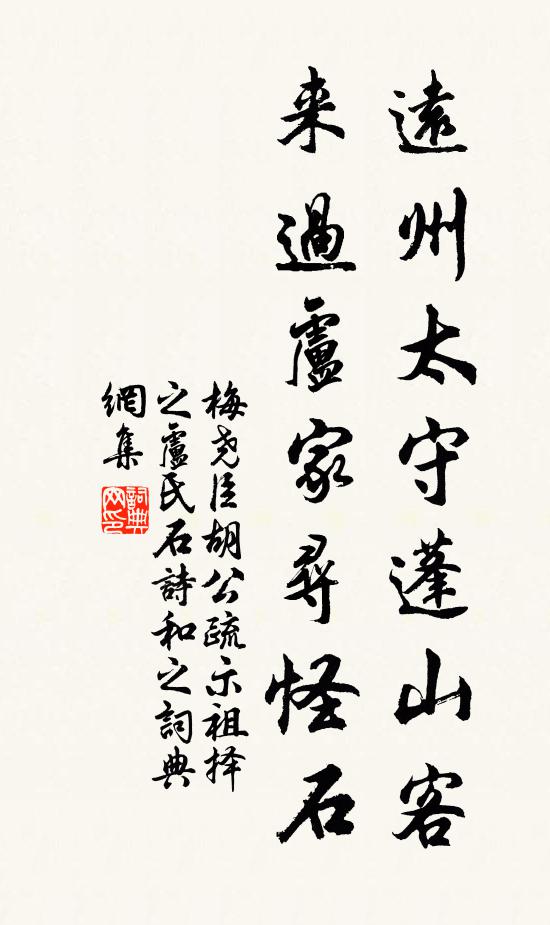 遠州太守蓬山客
来過盧家尋怪石
梅尧臣胡公疏示祖择
之盧氏石詩和之詞典
網集
詞典網印